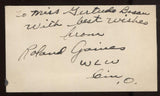 to Miss Gertrude
With best wishes
from
Roland Gaines
WLW
Cin, O.